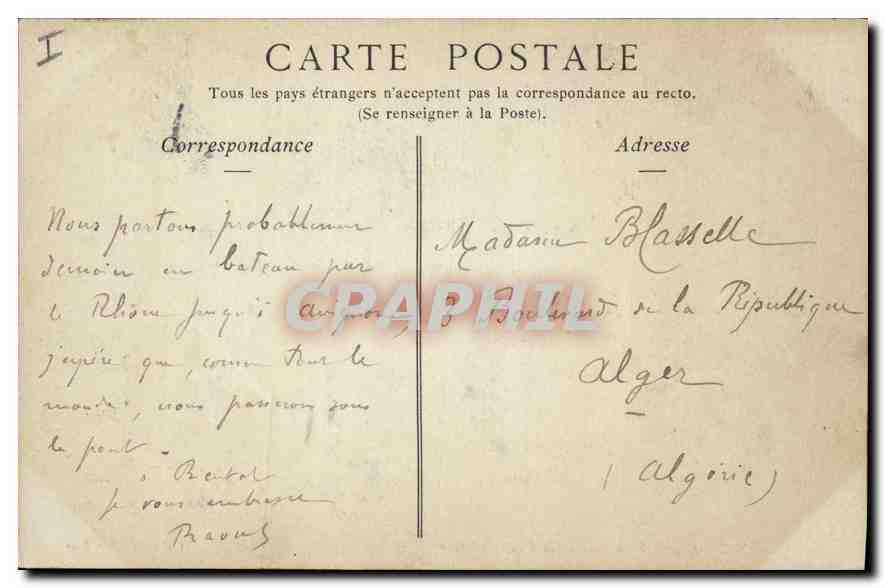 I
CARTE POSTALE
Tous les pays étrangers n'acceptent pas la correspondance au recto.
(Se renseigner à la Poste).
Correspondance
Nous partons probablement
demain en bateau par
le Rhône jusqu'à avignon,
j'espère que, comme tous le
monde, nous passerons sous
le pont.
à Bientot
je vous embrasse
Raoul
Adresse
Madame Blasselle
3 Boulevard de la République
Alger
(Algérie)
CPAPHIL